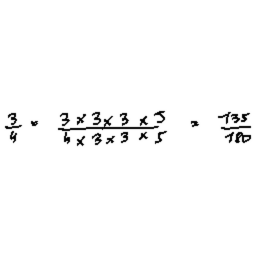 3/4 = 3 × 3 × 3 × 5 / 4 × 3 × 3 × 5 = 135/180